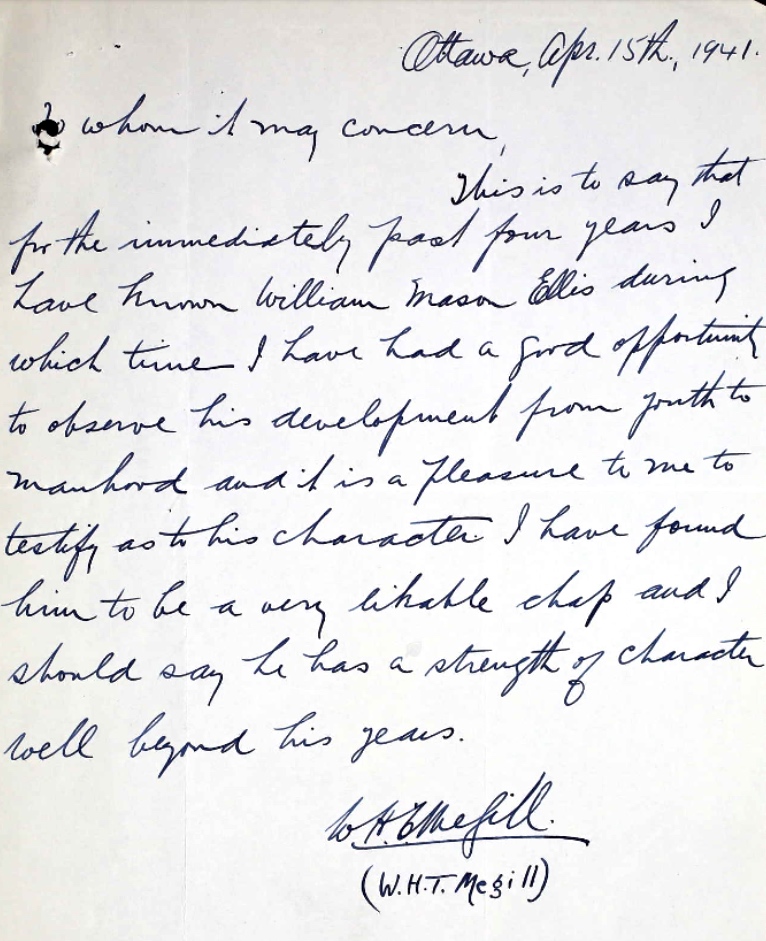 Ottawa, Apr. 15th., 1941.
To whom it may concern,
This is to say that
for the immediately past four years I
have known William Mason Ellis during
which time I have had a good opportunity
to observe his development from youth to
manhood and it is a pleasure to me to
testify as to his character. I have found
him to be a very likable chap and I
should say he has a strength of character
well beyond his years.
W.H.T. Megill.
(W.H.T. Megill)